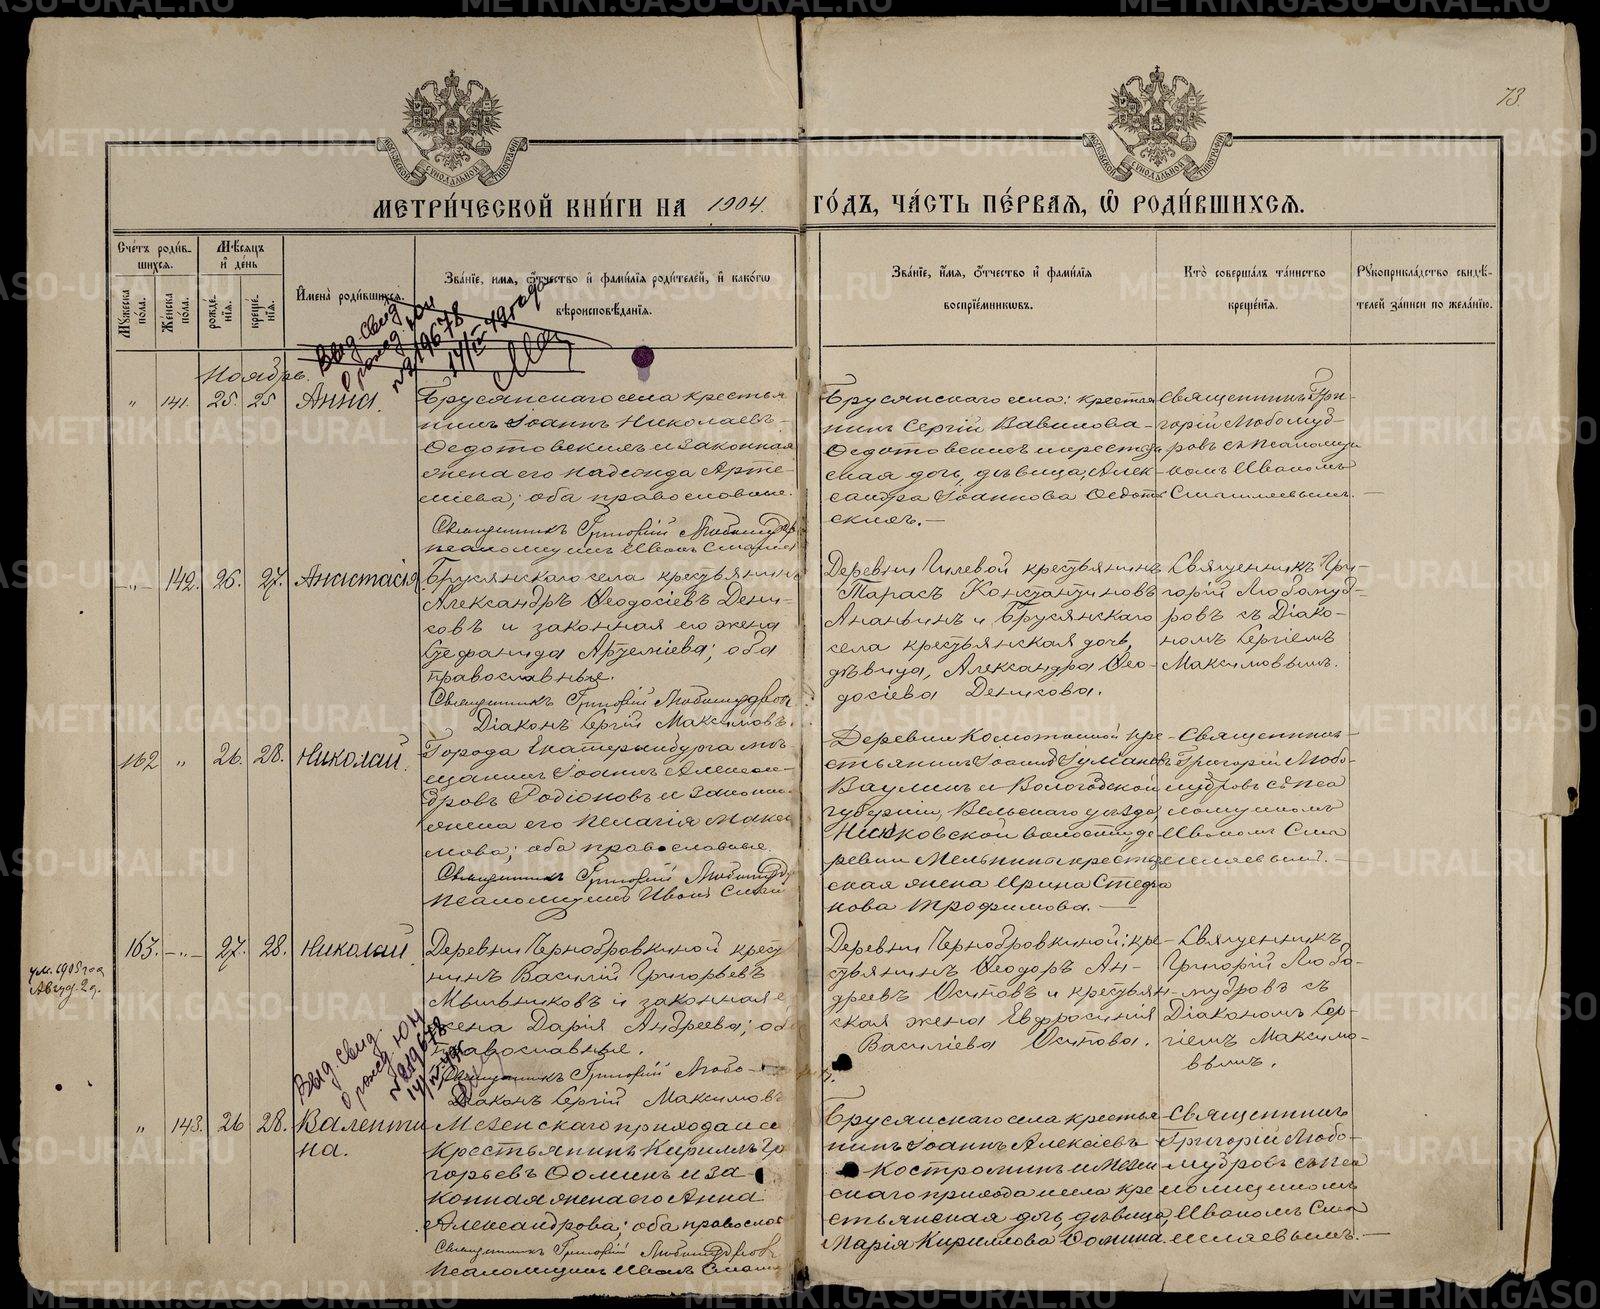 73.
МЕТРИ́ЧЕСКОЙ КНИ́ГИ НА 1904. ГО́ДЪ, ЧА́СТЬ ПЕ́РВАЯ, Ѽ РОДИ́ВШИХСѦ.
Счетъ роди́в-
шихся.
Мѣсяцъ
и де́нь
Мꙋжеска по́ла.
Же́нска по́ла.
рожде́-
нїя.
креще́-
нїя.
Имена̀ роди́вшихся.
Зва́нїе, имя, ѻтчество и фами́лїя роди́телей, и како́гѡ
вѣроисповѣ́данїя.
Зва́нїе, и́мя, ѻтчество и фами́лїя
воспрїе́мникѡвъ.
Кто̀ соверша́лъ та́инство
креще́нїя.
Рꙋкоприкла́дство свидѣ́-
телей за́писи по жела́нїю.
Выд. свид.
о рожд.
№ 219678
14/IV 49 года
Ноябрь.
" 141. 25. 25 Анна.
Брусянскаго села крестья
нинъ Іоаннъ Николаевъ
Ѳедотовскихъ и законная
жена его Надежда Арте-
міева; оба православные.
Священникъ Григорій Любомудров
псаломщикъ Иванъ
Брусянскаго села: крестья
нинъ Сергій Вавилова
Ѳедотовскихъ и крестья
ская дочь, дѣвица, Алек-
сандра Іоаннова Ѳедотов
скихъ.—
Священникъ Гри-
горій Любомуд-
ровъ съ псаломщи
комъ Иваномъ
142. 26. 27. Анастасія
Брусянскаго села крестьянинъ
Александръ Ѳеодосіевъ Дени-
совъ и законная его жена
Стефанида Артеміева; оба
православные.
Священникъ Григорій Любомудров
Діаконъ Сергій Максимовъ.
Деревни Гилевой крестьянинъ
Тарасъ Константиновъ
Ананьинъ и Брусянскаго
села крестьянская дочь,
дѣвица, Александра Ѳео-
досіева Денисова.
Священникъ Гри-
горій Любомуд-
ровъ съ Діако-
номъ Сергіемъ
Максимовымъ.
162 " 26. 28. Николай.
Города Екатеринбурга мѣ-
щанинъ Іоаннъ Алексан-
дровъ Родіоновъ и законная
жена его Пелагія Макси
мова; оба православные.
Священникъ Григорій Любомудр
псаломщикъ Иванъ
Деревни кре-
стьянинъ Іоаннъ
Ваулинъ и Вологодской
губерніи, Вельскаго уѣзда,
волости де-
ревни крестьян
ская жена Ирина Стефа
нова Трофимова.—
Священникъ
Григорій Любо-
мудровъ съ пса
ломщикомъ
Иваномъ
163. " 27. 28. Николай
ум. 1905 года
Авгус. 2 д.
Деревни Чернобровкиной крест
нинъ Василій Григорьевъ
Мыльниковъ и законная е
жена Дарія Андреева; оба
православные.
Священникъ Григорій Любо-
Діаконъ Сергій Максимовъ
Деревни Чернобровкиной: кре-
стьянинъ Ѳеодоръ Ан-
дреевъ Осиповъ и крестьян-
ская жена Евфросинія
Василіева Осипова.
Священникъ
Григорій Любо-
мудровъ съ
Діакономъ Сер-
гіемъ Максимо-
вымъ.
Выд. свид.
о рожд.
№ 219678
14/IV
" 143. 26 28. Валенти
на.
Мезенскаго прихода и села
Крестьянинъ Кириллъ Гри
горьевъ Ѳоминъ и за
конная жена его Анна
Александрова; оба православ
Священникъ Григорій Любомудров
псаломщикъ Иванъ
Брусянскаго села крестья
нинъ Іоаннъ Алексіевъ
Костроминъ и Мезен
скаго прихода и села кре
стьянская дочь, дѣвица,
Марія Кириллова Ѳомина.
Священникъ
Григорій Любо-
мудровъ съ пса
ломщикомъ
Иваномъ
METRIKI.GASO-URAL.RU